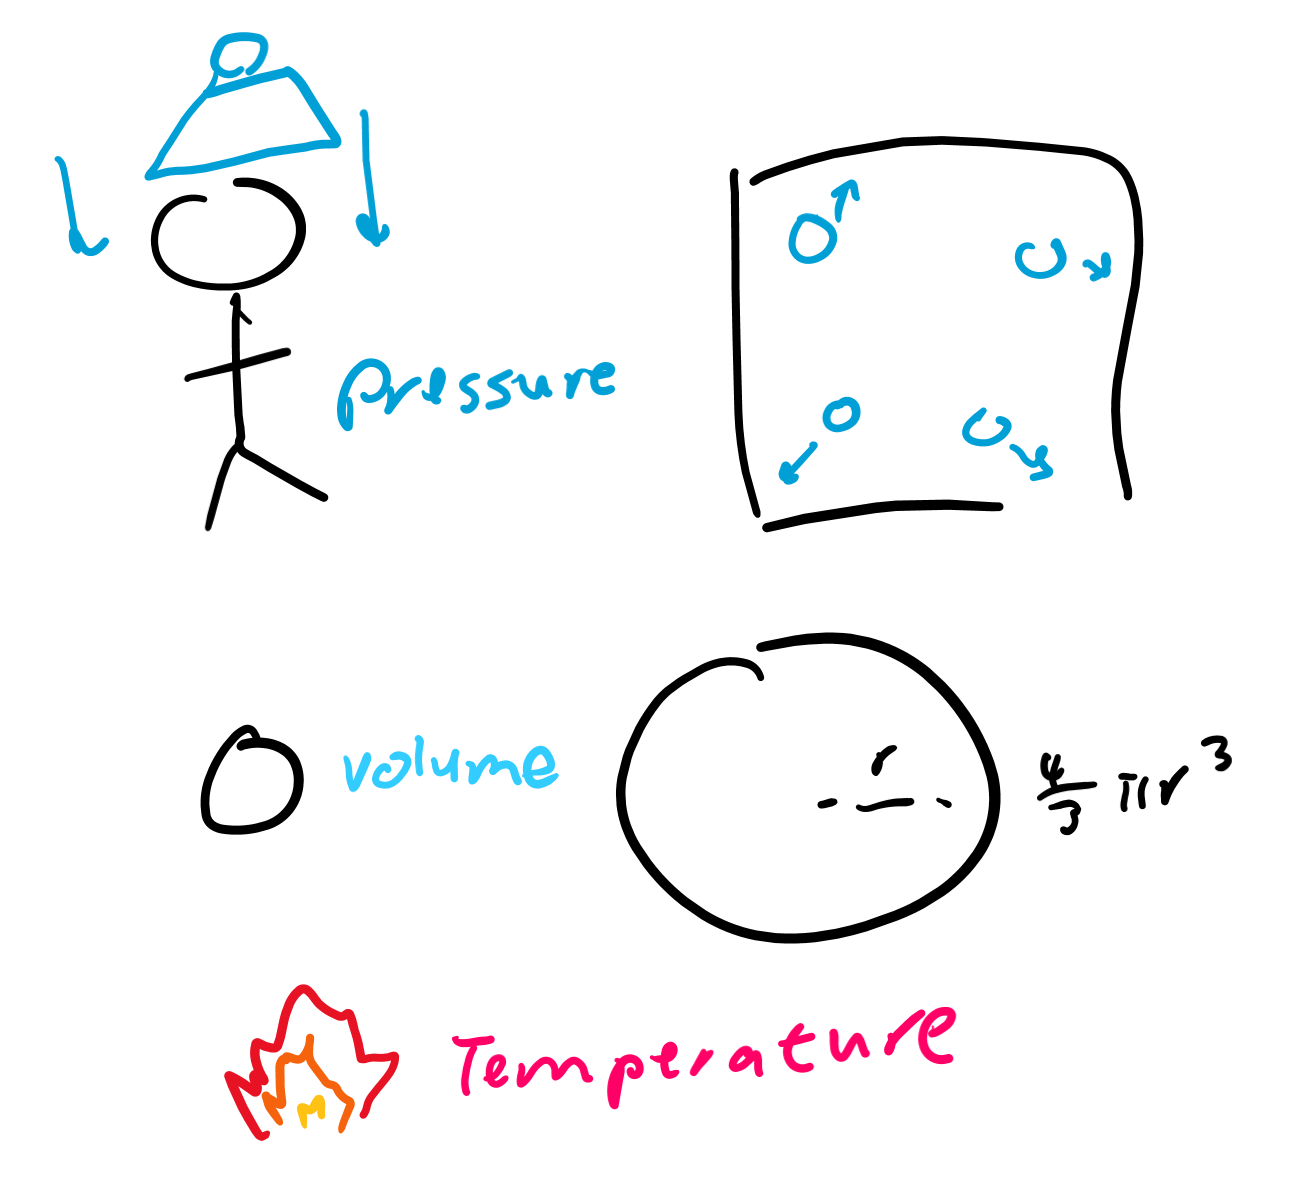 pressure
volume
r
4/3 πr³
Temperature